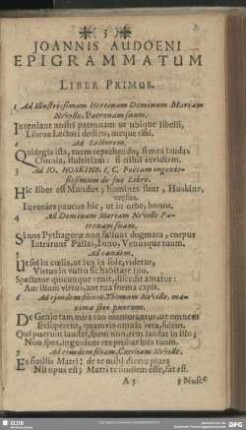 ( 3 )
JOANNIS AUDOENI
EPIGRAMMATUM
LIBER PRIMUS.
1 Ad Illustrissimam Heroinam Dominam Mariam
Nevelle. Patronam suam.
Inveniant nostri patronam ut ubique libelli,
Libros Lectori dedico, meque tibi.
2 Ad Lectorem.
Qui legis ista, tuam reprehendo, si mea laudas
Omnia, stultitiam: si nihil invidiam.
3 Ad IO. HOSKINS. I. C. Poëtam ingenio-
sissimum de suo Libro.
Hic liber est Mundus; homines sunt, Hoskine,
versus.
Invenies paucos hic, ut in orbe, bonos.
4 Ad Dominam Mariam Nevelle Pa-
tronam suam.
Si nos Pythagoræ non fallunt dogmata, corpus
Intrarunt Pallas, Juno, Venusque tuum.
5 Ad eandem.
Ut sol in cœlis, ut lux in sole, videtur,
Virtus in vultu sic habitare tuo.
Spectator quicunque venit, discedit amator:
Aut illum virtus, aut tua forma capit.
6 Ad ejusdem filium Thomam Nevelle, ma-
ximæ spei puerum.
De Genio tam mira tuo memorantur, ut omnem
Exsuperent, quamvis omnia vera, fidem.
Qui puerum laudat, spem non rem laudat in illo;
Non spes, ingenium res probat ipsa tuum.
7 Ad ejusdem filiam, Ceciliam Nevelle.
Es similis Matri: de te nihil dicere plura
Nil opus est; Matri te similem esse, sat est.
A 3
8 Nusc